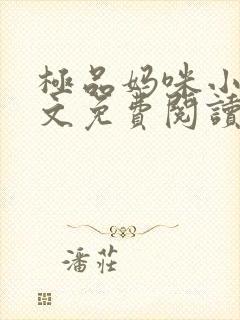 極品妈咪小
文免費閱讀
潘莊